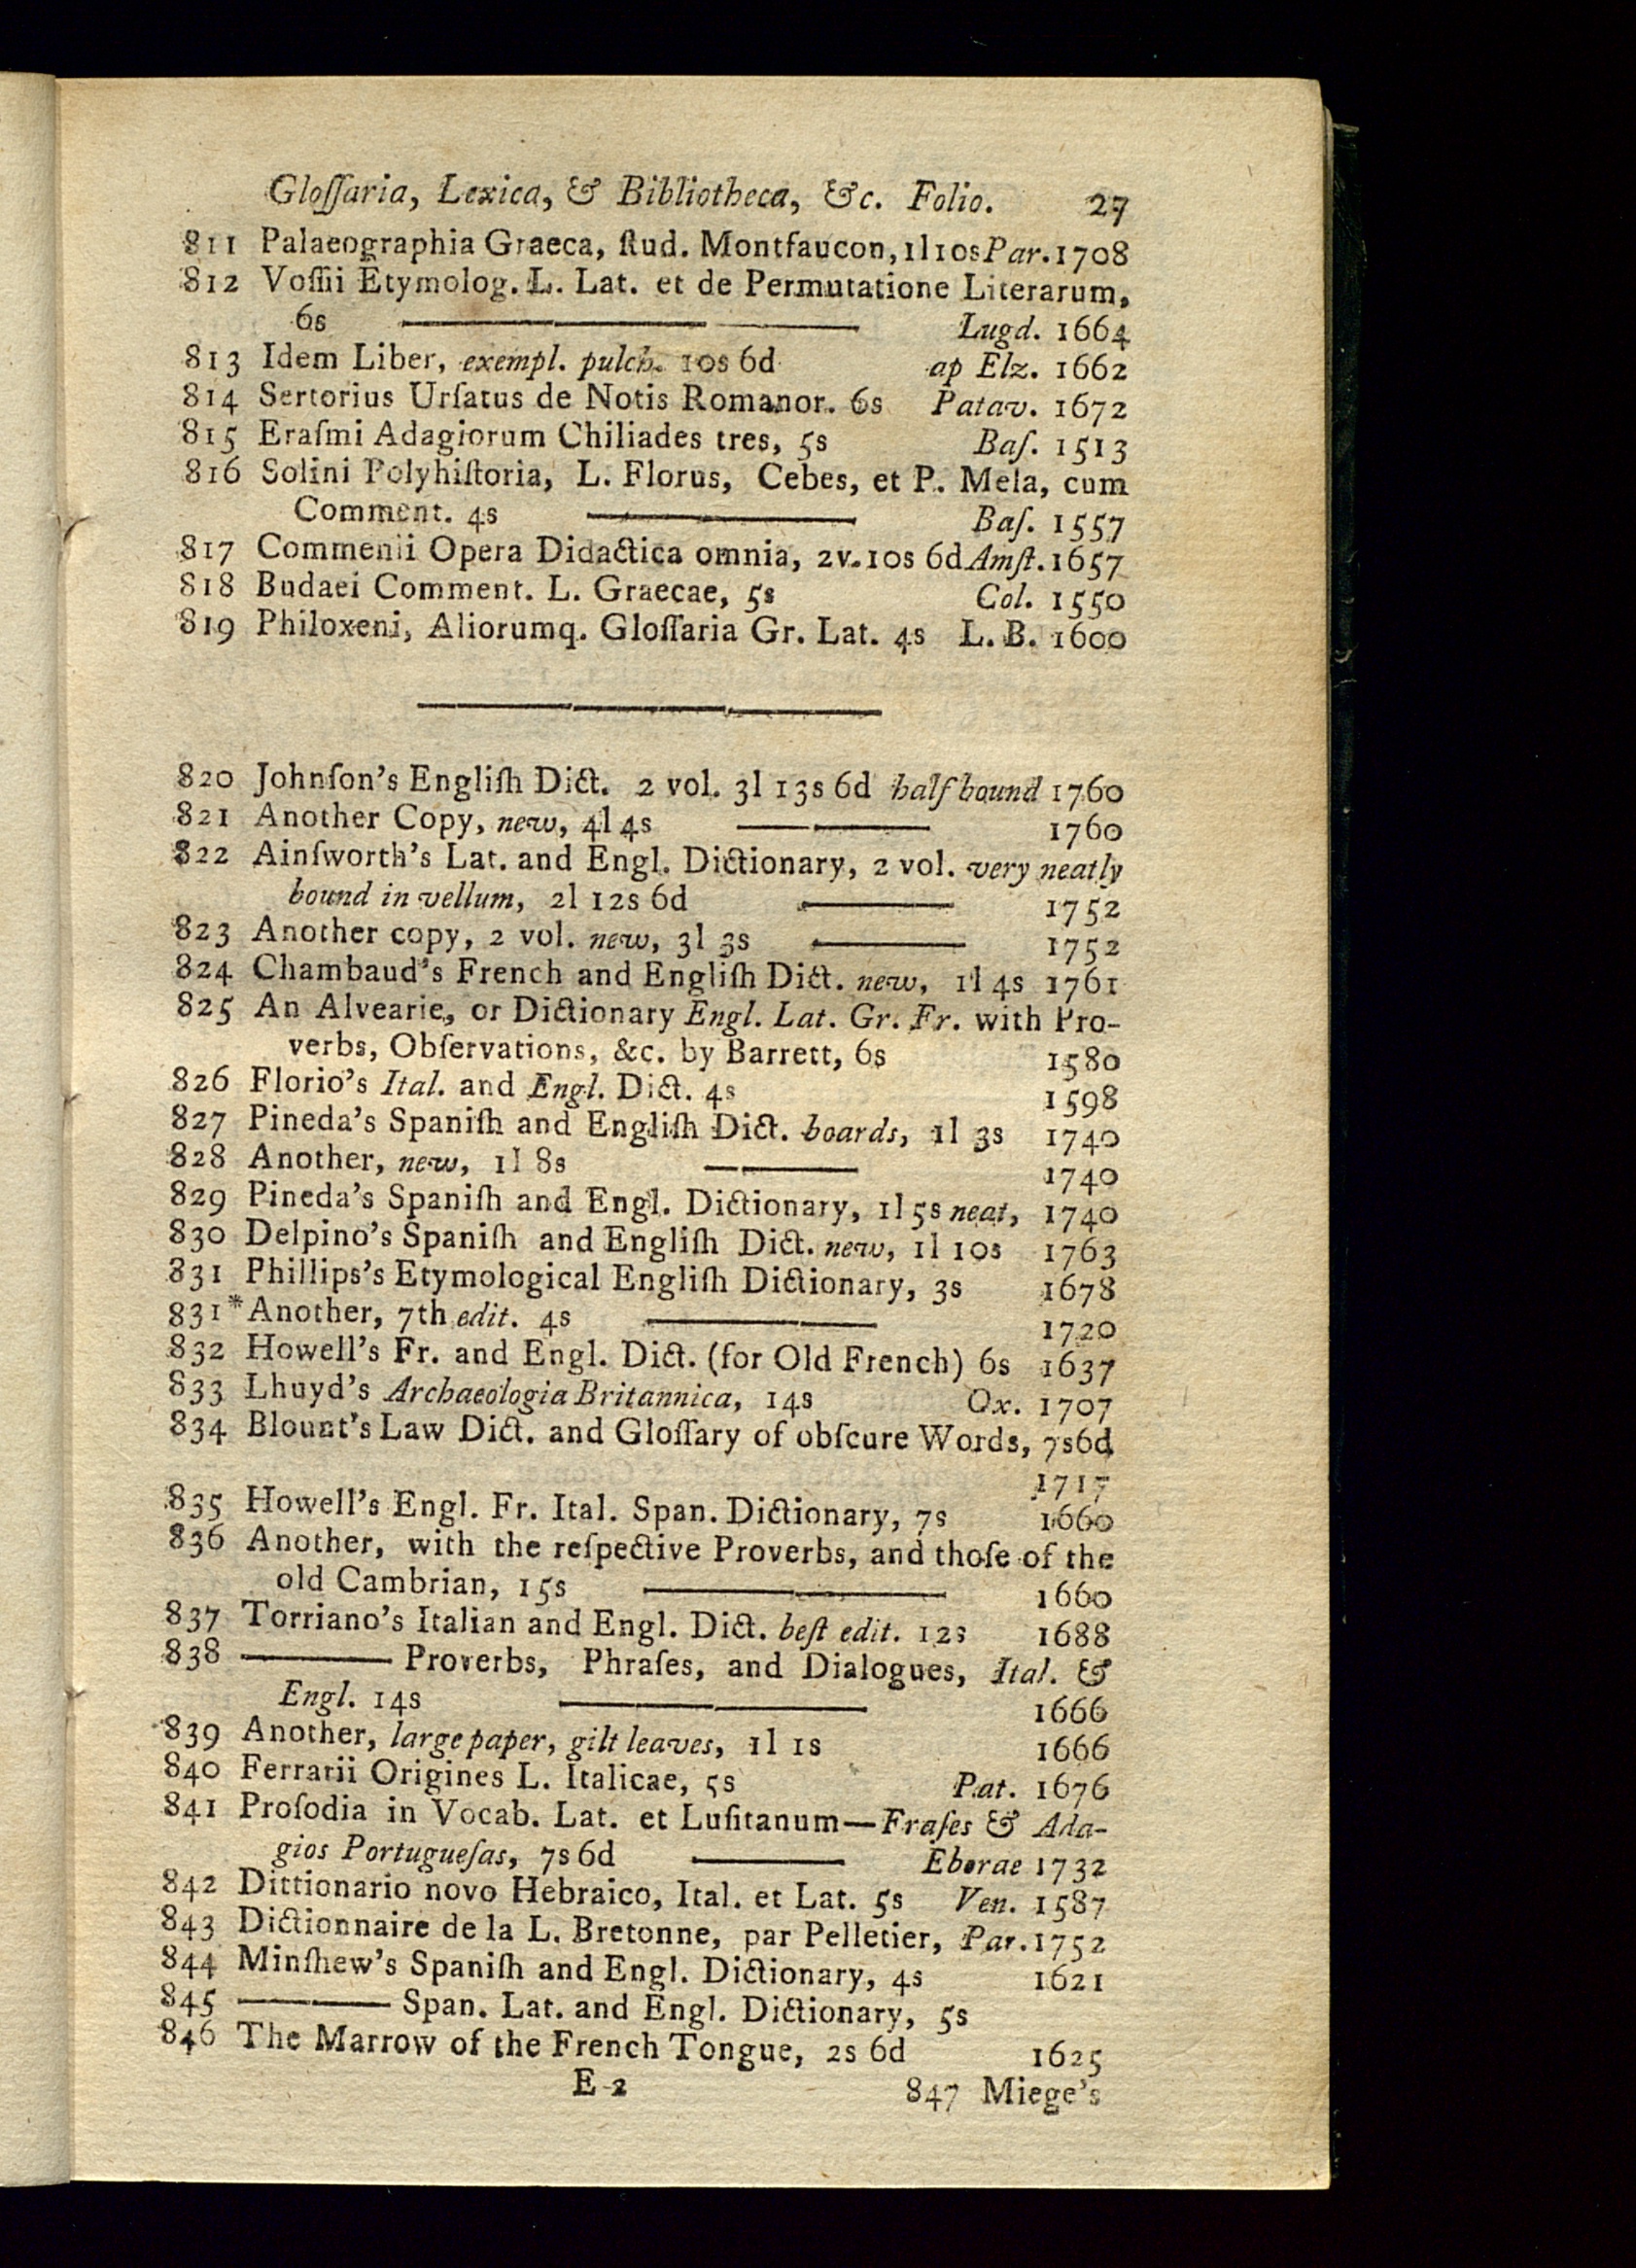 Gloſſaria, Lexica, & Bibliotheca, &c. Folio. 27
811 Palaeographia Graeca, ſtud. Montfaucon, 1l 10s Par. 1708
812 Voſſii Etymolog. L. Lat. et de Permutatione Literarum,
6s ——— Lugd. 1664
813 Idem Liber, exempl. pulch. 10s 6d ap Elz. 1662
814 Sertorius Urſatus de Notis Romanor. 6s Patav. 1672
815 Eraſmi Adagiorum Chiliades tres, 5s Baſ. 1513
816 Solini Polyhiſtoria, L. Florus, Cebes, et P. Mela, cum
Comment. 4s ——— Baſ. 1557
817 Commenii Opera Didactica omnia, 2v. 10s 6d Amſt. 1657
818 Budaei Comment. L. Graecae, 5s Col. 1550
819 Philoxeni, Aliorumq. Gloſſaria Gr. Lat. 4s L. B. 1600
820 Johnſon's Engliſh Dict. 2 vol. 3l 13s 6d half bound 1760
821 Another Copy, new, 4l 4s ——— 1760
822 Ainſworth's Lat. and Engl. Dictionary, 2 vol. very neatly
bound in vellum, 2l 12s 6d ——— 1752
823 Another copy, 2 vol. new, 3l 3s ——— 1752
824 Chambaud's French and Engliſh Dict. new, 1l 4s 1761
825 An Alvearie, or Dictionary Engl. Lat. Gr. Fr. with Pro-
verbs, Obſervations, &c. by Barrett, 6s 1580
826 Florio's Ital. and Engl. Dict. 4s 1598
827 Pineda's Spaniſh and Engliſh Dict. boards, 1l 3s 1740
828 Another, new, 1l 8s ——— 1740
829 Pineda's Spaniſh and Engl. Dictionary, 1l 5s neat, 1740
830 Delpino's Spaniſh and Engliſh Dict. new, 1l 10s 1763
831 Phillips's Etymological Engliſh Dictionary, 3s 1678
831* Another, 7th edit. 4s ——— 1720
832 Howell's Fr. and Engl. Dict. (for Old French) 6s 1637
833 Lhuyd's Archaeologia Britannica, 14s Ox. 1707
834 Blount's Law Dict. and Gloſſary of obſcure Words, 7s6d
1717
835 Howell's Engl. Fr. Ital. Span. Dictionary, 7s 1660
836 Another, with the reſpective Proverbs, and thoſe of the
old Cambrian, 15s ——— 1660
837 Torriano's Italian and Engl. Dict. beſt edit. 12s 1688
838 ——— Proverbs, Phraſes, and Dialogues, Ital. &
Engl. 14s ——— 1666
839 Another, large paper, gilt leaves, 1l 1s 1666
840 Ferrarii Origines L. Italicae, 5s Pat. 1676
841 Proſodia in Vocab. Lat. et Luſitanum—Fraſes & Ada-
gios Portugueſas, 7s 6d ——— Eborae 1732
842 Dittionario novo Hebraico, Ital. et Lat. 5s Ven. 1587
843 Dictionnaire de la L. Bretonne, par Pelletier, Par. 1752
844 Minſhew's Spaniſh and Engl. Dictionary, 4s 1621
845 ——— Span. Lat. and Engl. Dictionary, 5s
846 The Marrow of the French Tongue, 2s 6d 1625
E 2 847 Miege's